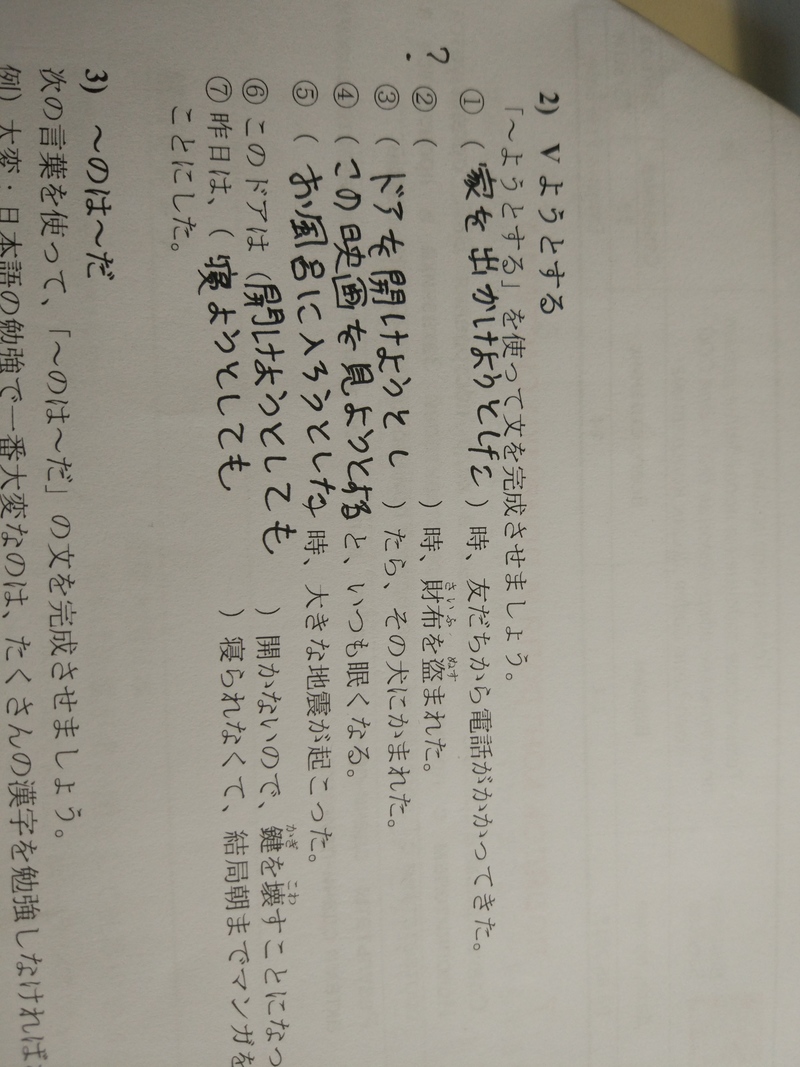 2) Vようとする
「～ようとする」を使って文を完成させましょう。
① (家を出かけようとした) 時、友だちから電話がかかってきた。
? ② ( ) 時、財布を盗まれた。
さいふ ぬす
③ (ドアを開けようとし) たら、その犬にかまれた。
④ (この映画を見ようとすると、いつも眠くなる。
⑤ (お風呂に入ろうとした時、大きな地震が起こった。
⑥ このドアは (開けようとしても ) 開かないので、鍵を壊すことになっ
かぎ こわ
⑦ 昨日は、(寝ようとしても ) 寝られなくて、結局朝までマンガを
ことにした。
3) ～のは～だ
次の言葉を使って、「～のは～だ」の文を完成させましょう。
例) 大変：日本語の勉強で一番大変なのは、たくさんの漢字を勉強しなければ